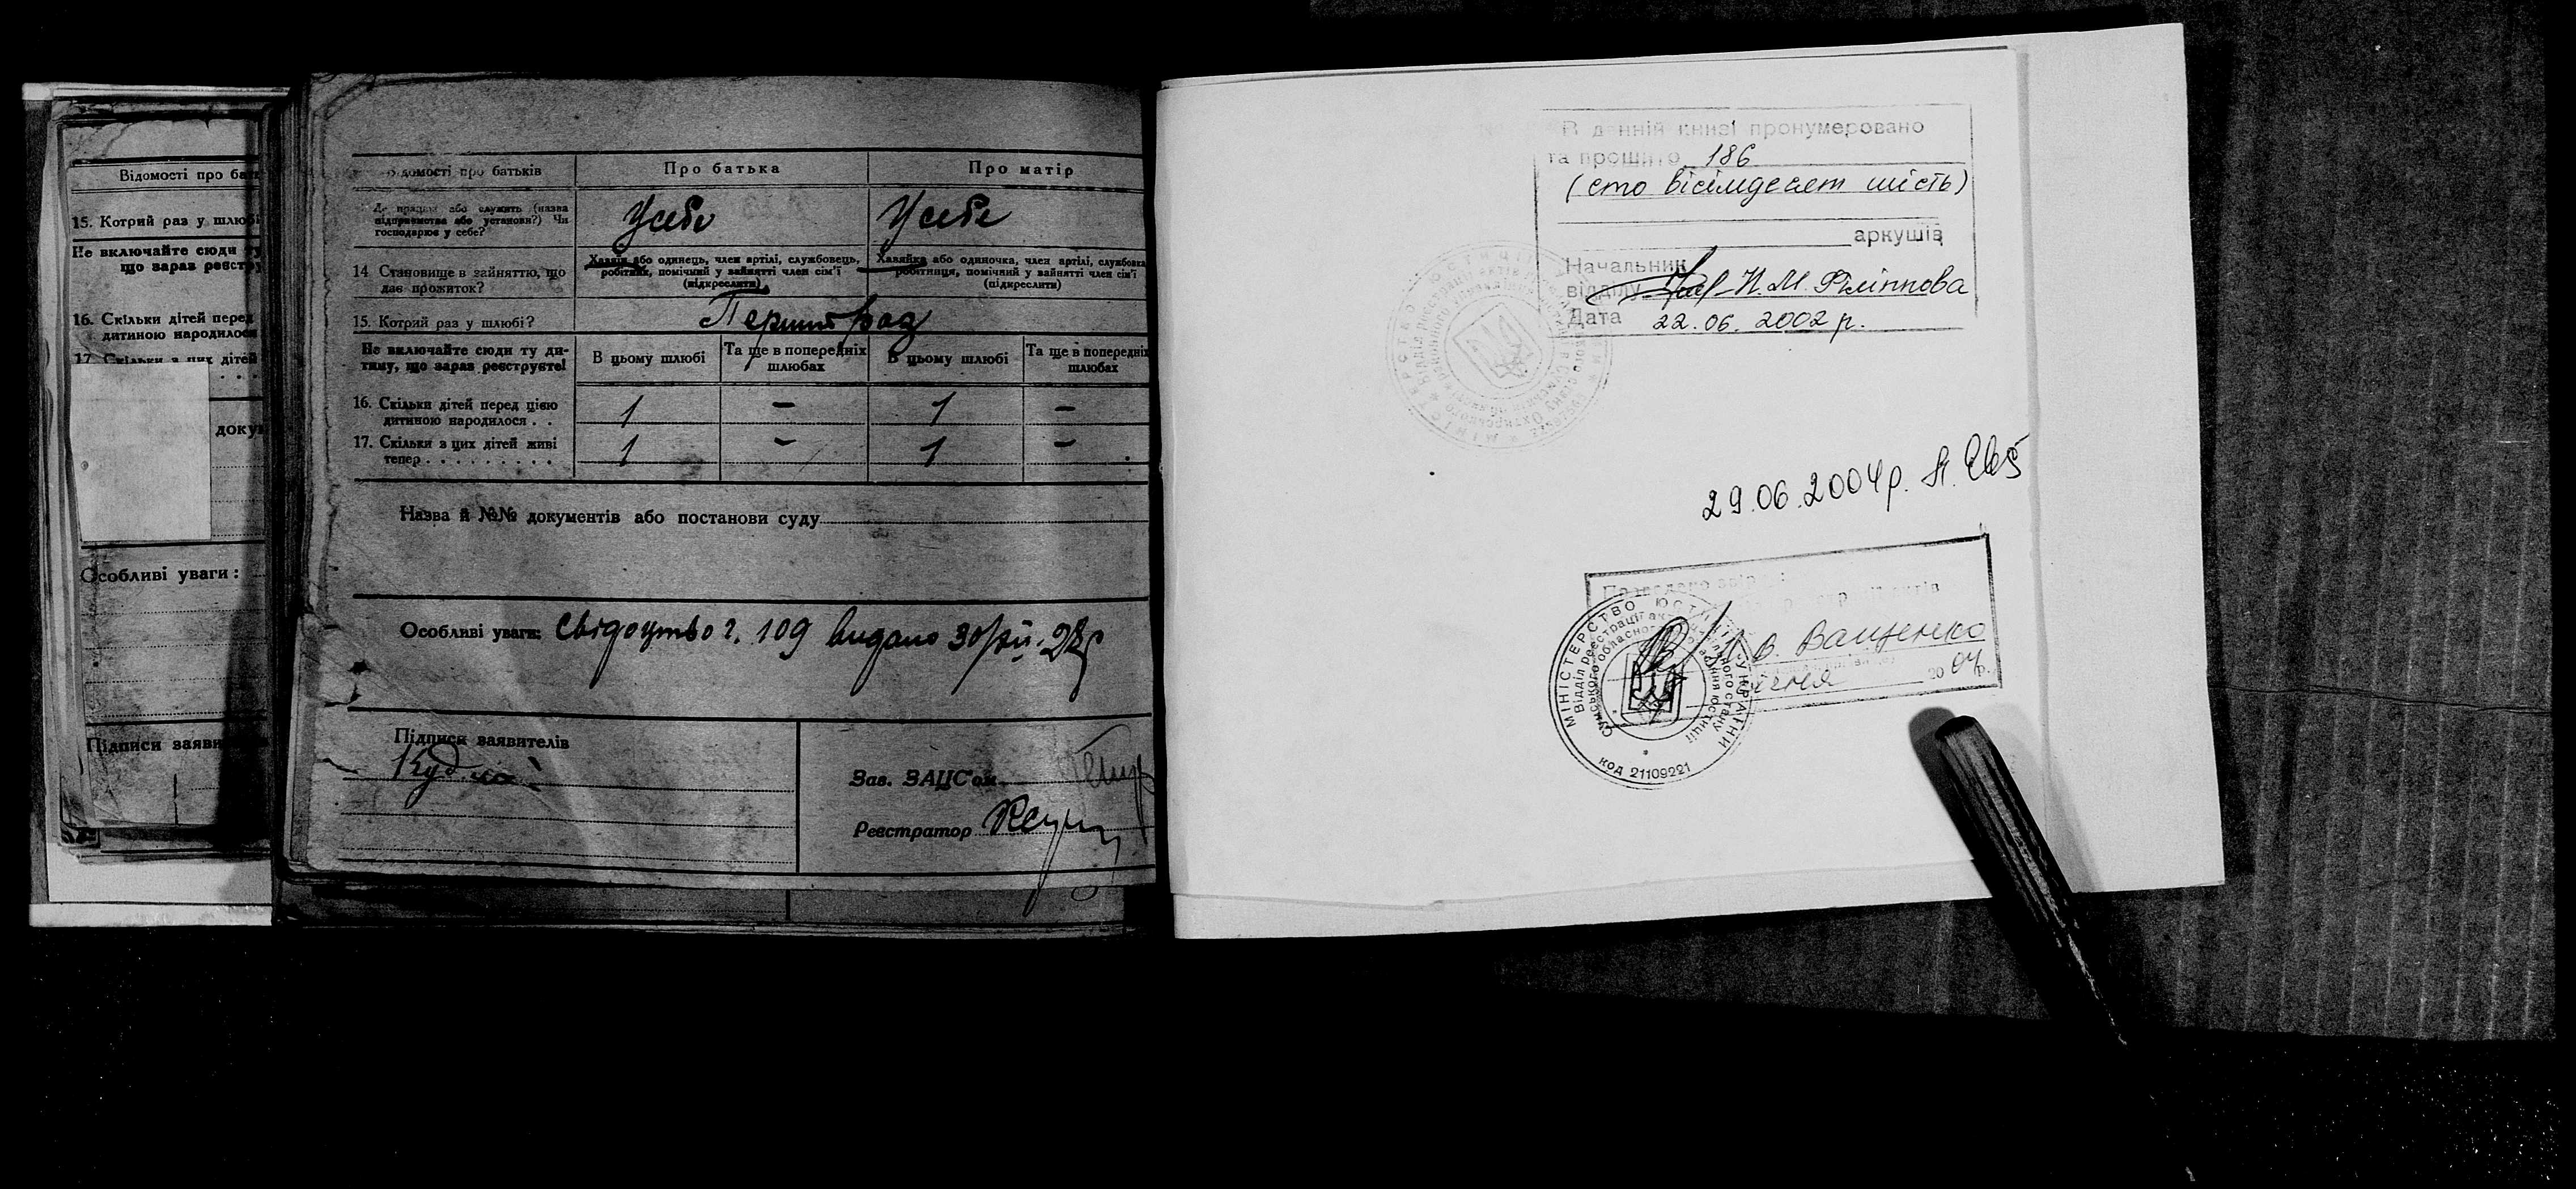 Відомості про бат
15. Котрий раз у шлюбі
Не включайте сюди ту
що зараз реєстру
16. Скільки дітей перед
дитиною народилося
17. Скільки з цих дітей
доку
Особливі уваги:
Підписи заяви
Відомості про батьків
Про батька
Про матір
Де працює або служить (назва
підприємства або установи?) Чи
господарює у себе?
У себе
У себе
14 Становище в зайняттю, що
дає прожиток?
Хазяїн або одинець, член артілі, службовець,
робітник, помічний у занятті член сім'ї
(підкреслити)
Хазяйка або одиночка, член артілі, службовка
робітниця, помічний у занятті член сім'ї
(підкреслити)
15. Котрий раз у шлюбі?
Перший раз
Не включайте сюди ту ди-
тину, що зараз реєструєте!
В цьому шлюбі
Та ще в попередніх
шлюбах
В цьому шлюбі
Та ще в попередніх
шлюбах
16. Скільки дітей перед цією
дитиною народилося . .
1 – 1 –
17. Скільки з цих дітей живі
тепер . . . . . . . . .
1 – 1 –
Назва й №№ документів або постанови суду
Особливі уваги: Свідоцтво ч. 109 видано 30/XII. 28р
Підписи заявителів
Зав. ЗАЦС'ом
Реєстратор
В данній книзі пронумеровано
та прошито 186
(сто вісімдесят шість)
аркушів
Начальник
відділу Н.М. Філіппова
Дата 22.06. 2002 р.
29.06.2004р.
Ващенко
2004р.
МІНІСТЕРСТВО ЮСТИЦІЇ УКРАЇНИ
Відділ реєстрації актів цивільного стану
Сумського обласного управління юстиції
код 21109221